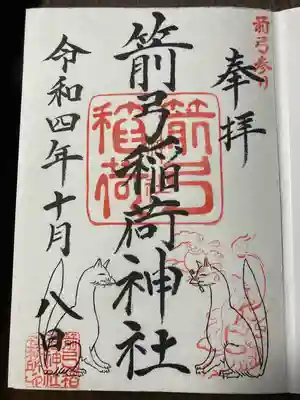 箭弓参り
奉拝
箭弓稲荷神社
箭弓
稲荷
令和四年十月八日